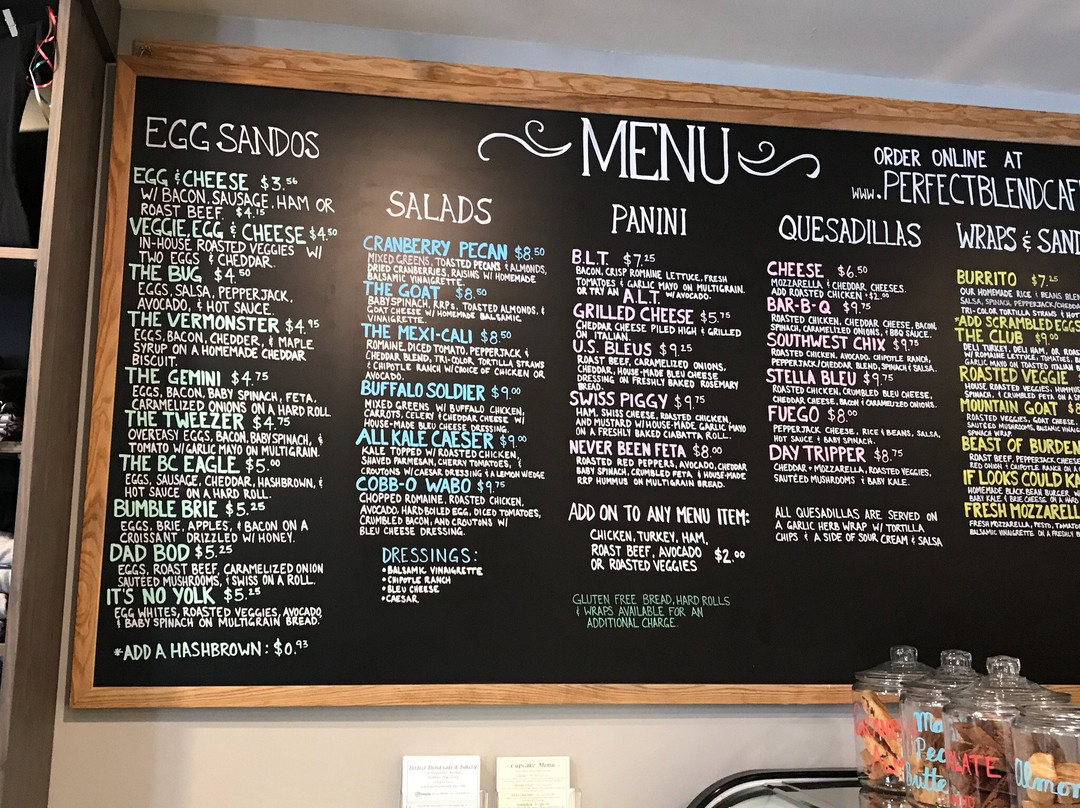 EGG SANDOS
EGG & CHEESE $3.56
W/ BACON, SAUSAGE, HAM OR
ROAST BEEF. $4.15
VEGGIE, EGG & CHEESE $4.50
IN-HOUSE ROASTED VEGGIES W/
TWO EGGS & CHEDDAR.
THE BUG $4.50
EGGS, SALSA, PEPPERJACK,
AVOCADO, & HOT SAUCE.
THE VERMONSTER $4.95
EGGS, BACON, CHEDDER, & MAPLE
SYRUP ON A HOMEMADE CHEDDAR
BISCUIT.
THE GEMINI $4.75
EGGS, BACON, BABY SPINACH, FETA,
CARAMELIZED ONIONS ON A HARD ROLL
THE TWEEZER $4.75
OVEREASY EGGS, BACON, BABY SPINACH, &
TOMATO W/GARLIC MAYO ON MULTIGRAIN.
THE BC EAGLE $5.00
EGGS, SAUSAGE, CHEDDAR, HASHBROWN, &
HOT SAUCE ON A HARD ROLL.
BUMBLE BRIE $5.25
EGGS, BRIE, APPLES, & BACON ON A
CROISSANT DRIZZLED W/ HONEY.
DAD BOD $5.25
EGGS, ROAST BEEF, CARAMELIZED ONION
SAUTÉED MUSHROOMS, & SWISS ON A ROLL.
IT'S NO YOLK $5.25
EGG WHITES, ROASTED VEGGIES, AVOCADO,
& BABY SPINACH ON MULTIGRAIN BREAD.
*ADD A HASHBROWN: $0.93
MENU
SALADS
CRANBERRY PECAN $8.50
MIXED GREENS, TOASTED PECANS & ALMONDS,
DRIED CRANBERRIES, RAISINS W/ HOMEMADE
BALSAMIC VINAIGRETTE.
THE GOAT $8.50
BABY SPINACH, R.R.P.s, TOASTED ALMONDS, &
GOAT CHEESE W/ HOMEMADE BALSAMIC
VINAIGRETTE.
THE MEXI-CALI $8.50
ROMAINE, DICED TOMATO, PEPPERJACK &
CHEDDAR BLEND, TRI-COLOR TORTILLA STRAWS
& CHIPOTLE RANCH W/CHOICE OF CHICKEN OR
AVOCADO.
BUFFALO SOLDIER $9.00
MIXED GREENS W/ BUFFALO CHICKEN,
CARROTS, CELERY & CHEDDAR CHEESE W/
HOUSE-MADE BLEU CHEESE DRESSING.
ALL KALE CAESER $9.00
KALE TOPPED W/ ROASTED CHICKEN,
SHAVED PARMESAN, CHERRY TOMATOES, &
CROUTONS W/ CAESAR DRESSING & A LEMON WEDGE
COBB-O WABO $9.75
CHOPPED ROMAINE, ROASTED CHICKEN,
AVOCADO, HARD BOILED EGG, DICED TOMATOES,
CRUMBLED BACON, AND CROUTONS W/
BLEU CHEESE DRESSING.
DRESSINGS:
•BALSAMIC VINAIGRETTE
•CHIPOTLE RANCH
•BLEU CHEESE
•CAESAR
PANINI
B.L.T. $7.25
BACON, CRISP ROMAINE LETTUCE, FRESH
TOMATOES & GARLIC MAYO ON MULTIGRAIN.
OR TRY AN A.L.T. W/AVOCADO.
GRILLED CHEESE $5.75
CHEDDAR CHEESE PILED HIGH & GRILLED
ON ITALIAN.
U.S. BLEUS $9.25
ROAST BEEF, CARAMELIZED ONIONS,
CHEDDAR, HOUSE-MADE BLEU CHEESE
DRESSING ON FRESHLY BAKED ROSEMARY
BREAD.
SWISS PIGGY $9.75
HAM, SWISS CHEESE, ROASTED CHICKEN,
AND MUSTARD W/HOUSE-MADE GARLIC MAYO
ON A FRESHLY BAKED CIABATTA ROLL.
NEVER BEEN FETA $8.00
ROASTED RED PEPPERS, AVOCADO, CHEDDAR
BABY SPINACH, CRUMBLED FETA & HOUSE-MADE
RRP HUMMUS ON MULTIGRAIN BREAD.
ADD ON TO ANY MENU ITEM:
CHICKEN, TURKEY, HAM,
ROAST BEEF, AVOCADO $2.00
OR ROASTED VEGGIES
GLUTEN FREE BREAD, HARD ROLLS
& WRAPS AVAILABLE FOR AN
ADDITIONAL CHARGE.
ORDER ONLINE AT
WWW.PERFECTBLENDCAF
QUESADILLAS
CHEESE $6.50
MOZZARELLA & CHEDDAR CHEESES.
ADD ROASTED CHICKEN +$2.00
BAR-B-Q $9.75
ROASTED CHICKEN, CHEDDAR CHEESE, BACON,
SPINACH, CARAMELIZED ONIONS, & BBQ SAUCE.
SOUTHWEST CHIX $9.75
ROASTED CHICKEN, AVOCADO, CHIPOTLE RANCH,
PEPPERJACK/CHEDDAR BLEND, SPINACH & SALSA.
STELLA BLEU $9.75
ROASTED CHICKEN, CRUMBLED BLEU CHEESE,
CHEDDAR CHEESE, BACON & CARAMELIZED ONIONS.
FUEGO $8.00
PEPPERJACK CHEESE, RICE & BEANS, SALSA,
HOT SAUCE & BABY SPINACH.
DAY TRIPPER $8.75
CHEDDAR + MOZZARELLA, ROASTED VEGGIES,
SAUTÉED MUSHROOMS & BABY KALE.
ALL QUESADILLAS ARE SERVED ON
A GARLIC HERB WRAP W/ TORTILLA
CHIPS & A SIDE OF SOUR CREAM & SALSA
WRAPS & SAND
BURRITO $7.25
OUR HOMEMADE RICE & BEANS BLEN
SALSA, SPINACH, PEPPERJACK/CHEDDA
TRI-COLOR TORTILLA STRAWS & HOT
*ADD SCRAMBLED EGGS
THE CLUB $9.00
DELI TURKEY, DELI HAM, OR ROAS
W/ ROMAINE LETTUCE, TOMATOES, B
GARLIC MAYO ON TOASTED ITALIAN B
ROASTED VEGGIE
HOUSE ROASTED VEGGIES, HUMMUS
SPINACH, & CRUMBLED FETA ON A
MOUNTAIN GOAT $8
ROASTED VEGGIES, GOAT CHEESE,
SAUTEED MUSHROOMS, BALSAMIC
SPINACH WRAP
BEAST OF BURDEN
ROAST BEEF, PEPPERJACK CHEESE
RED ONION & CHIPOTLE RANCH ON A
IF LOOKS COULD KA
HOMEMADE BLACK BEAN BURGER, W
BABY KALE & BRIE CHEESE ON A HAR
FRESH MOZZARELL
FRESH MOZZARELLA, PESTO, TOMATO
BALSAMIC VINAIGRETTE ON A FRESHLY B
Perfect Blend Cafe & Bakery
Cupcake Menu
Pea
Butte
LATE
Almon